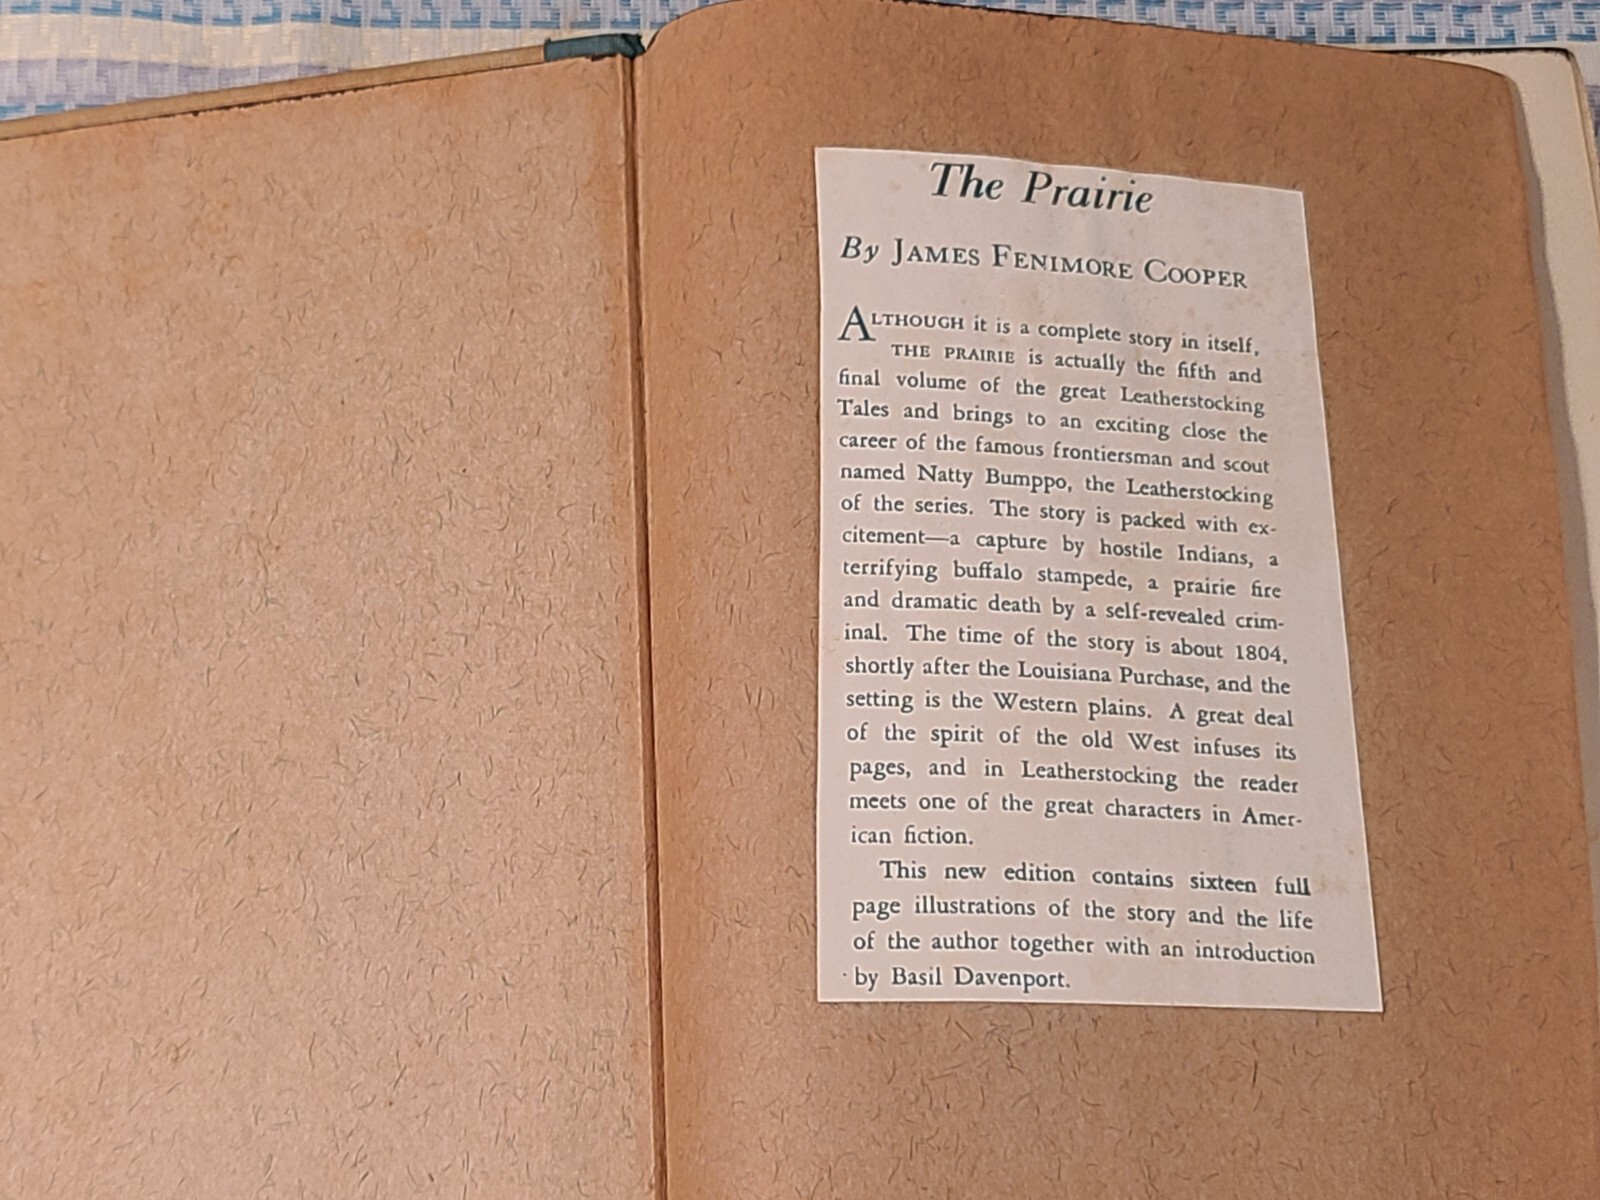 The Prairie
By JAMES FENIMORE COOPER
ALTHOUGH it is a complete story in itself,
THE PRAIRIE is actually the fifth and
final volume of the great Leatherstocking
Tales and brings to an exciting close the
career of the famous frontiersman and scout
named Natty Bumppo, the Leatherstocking
of the series. The story is packed with ex-
citement—a capture by hostile Indians, a
terrifying buffalo stampede, a prairie fire
and dramatic death by a self-revealed crim-
inal. The time of the story is about 1804,
shortly after the Louisiana Purchase, and the
setting is the Western plains. A great deal
of the spirit of the old West infuses its
pages, and in Leatherstocking the reader
meets one of the great characters in Amer-
ican fiction.
This new edition contains sixteen full
page illustrations of the story and the life
of the author together with an introduction
by Basil Davenport.